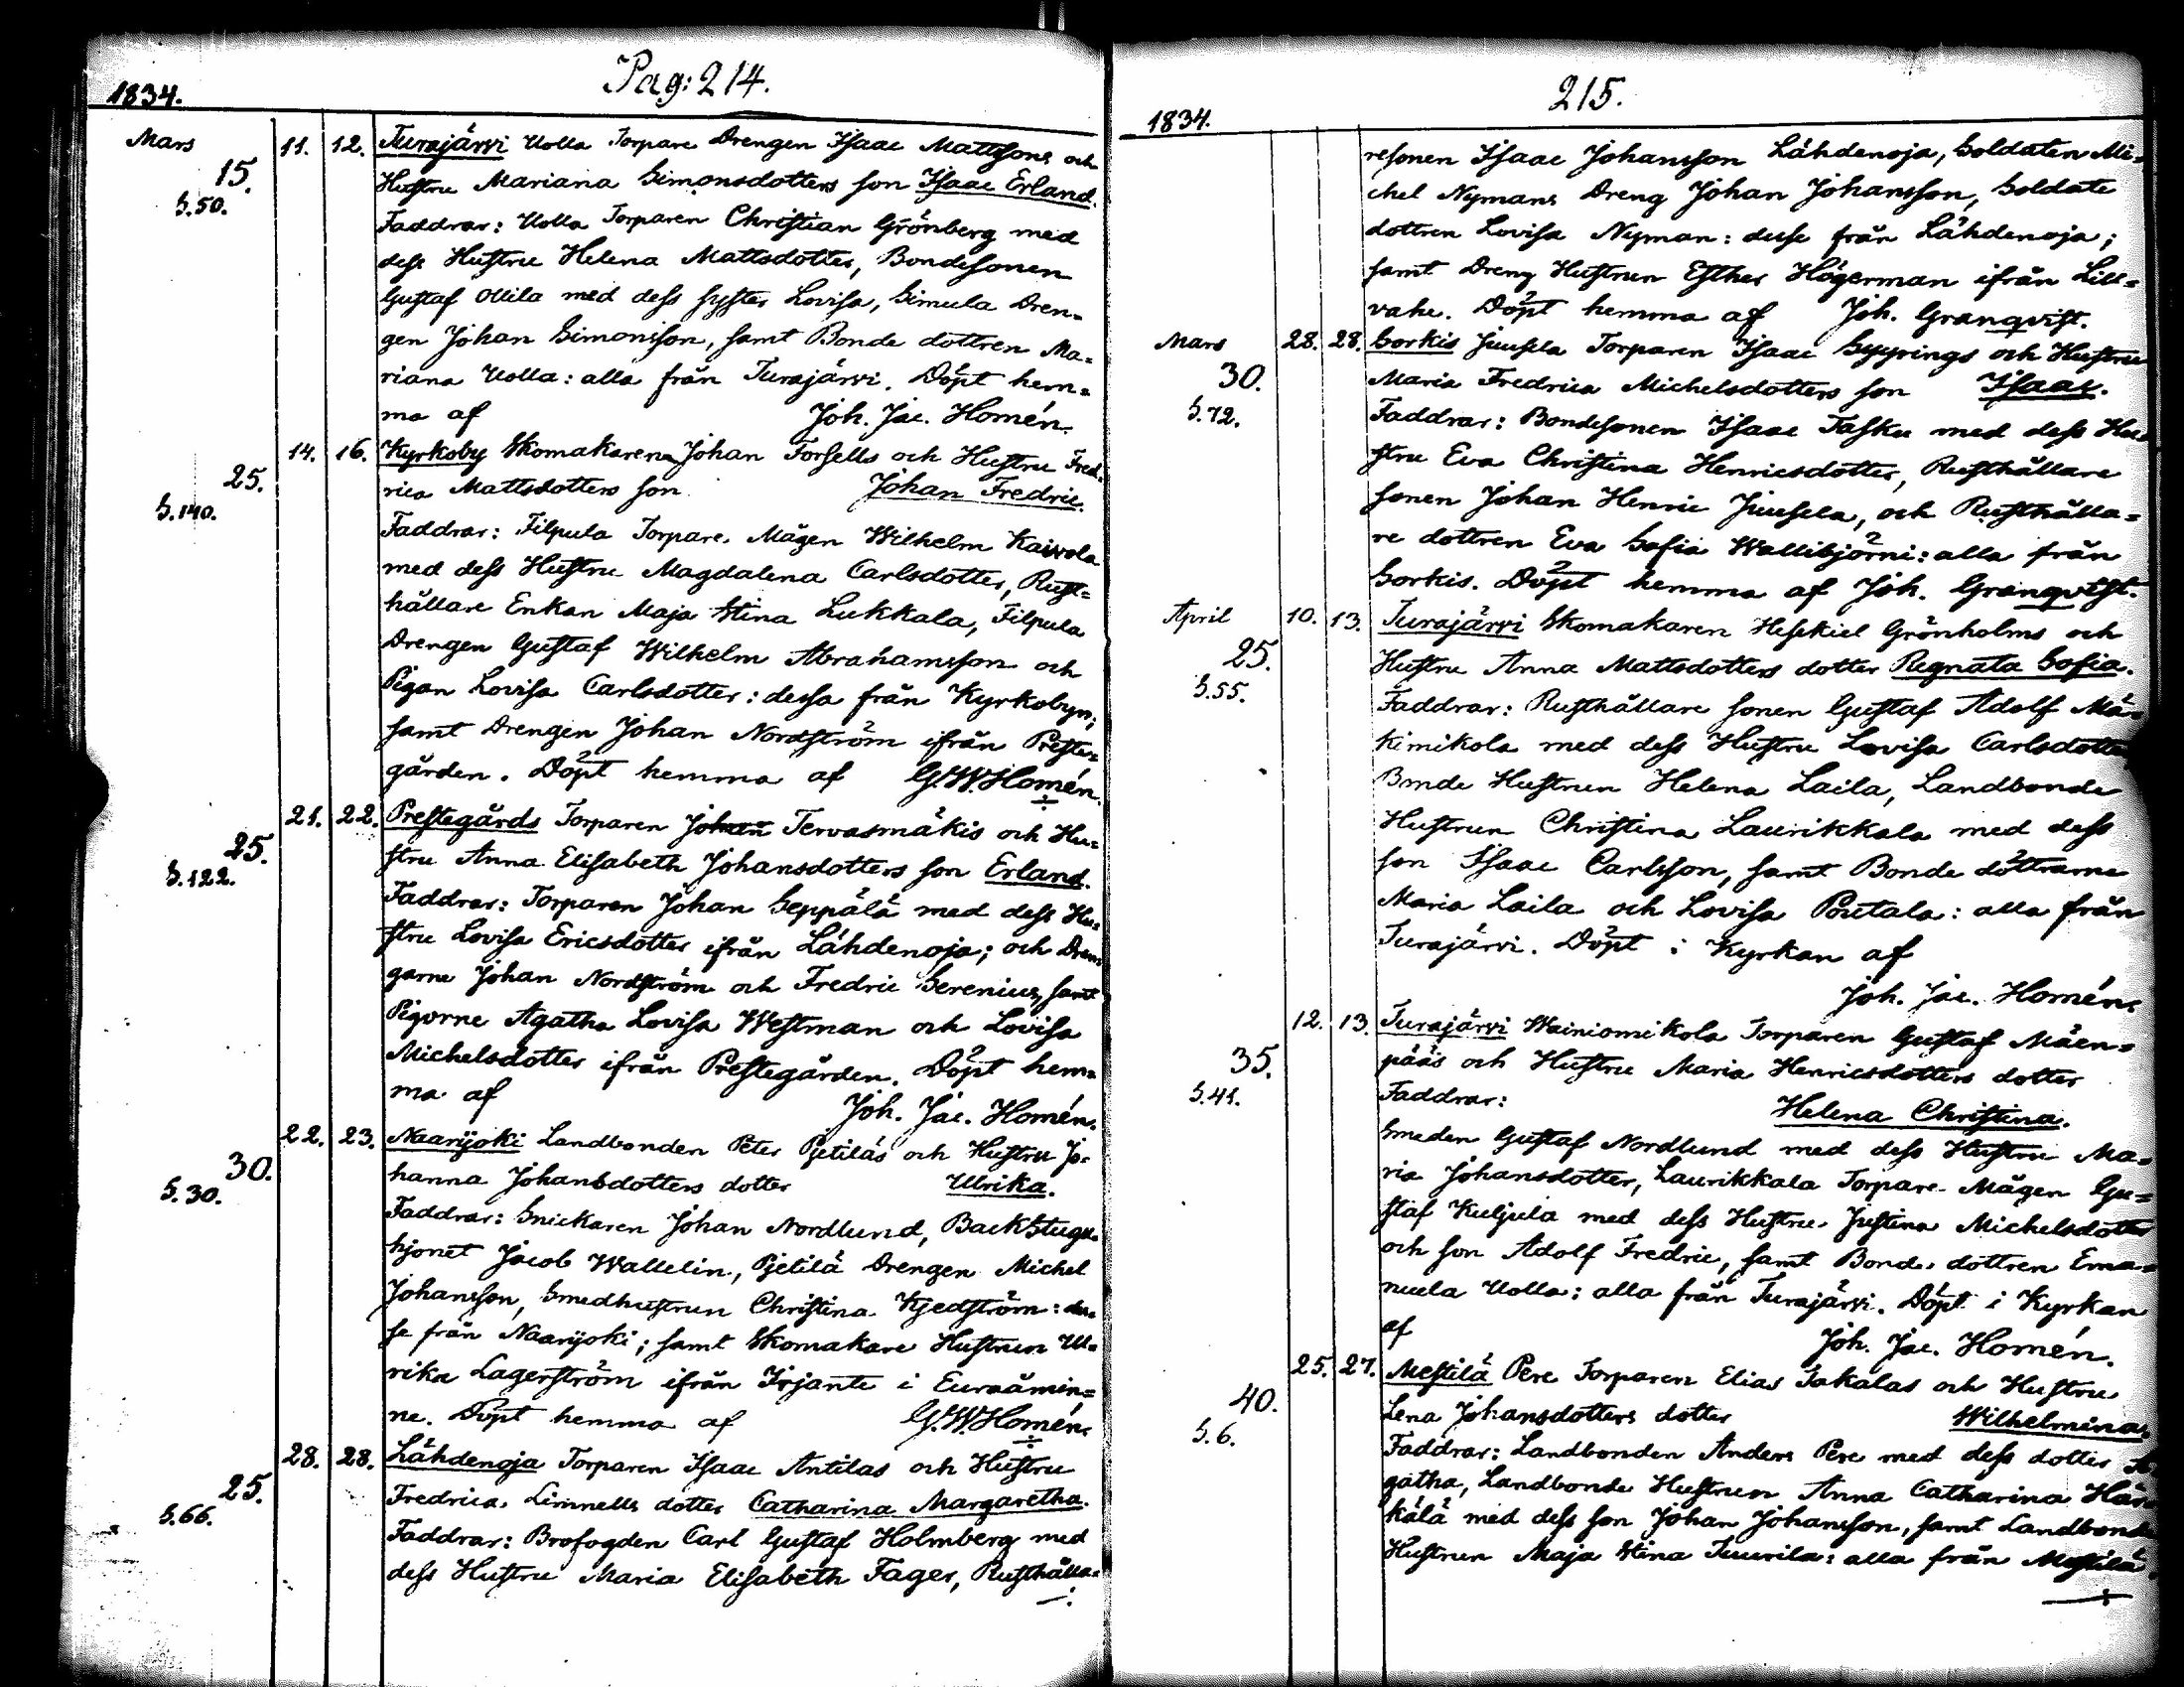 Pag: 214.
1834.
Mars 11. 12. Turajärvi Uolla Torpare Drengen Isaac Mattssons och
15. Hustru Mariana Simonsdotters son Isaac Erland.
S. 50. Faddrar: Uolla Torparen Christian Grönberg med
dess Hustru Helena Mattsdotter, Bondesonen
Gustaf Ollila med dess syster Lovisa, Simula Dren=
gen Johan Simonsson, samt Bonde dottren Ma=
riana Uolla: alla från Turajärvi. Döpt hem=
ma af Joh. Jac. Homén.
14. 16. Kyrkoby Skomakaren Johan Forsells och Hustru Fred=
25. rica Mattsdotters son Johan Fredric.
S. 140. Faddrar: Filpula Torpare Mågen Wilhelm Kaivola
med dess Hustru Magdalena Carlsdotter, Rust=
hållare Enkan Maja Stina Lukkala, Filpula
Drengen Gustaf Wilhelm Abrahamsson och
Pigan Lovisa Carlsdotter: dessa från Kyrkobyn;
samt Drengen Johan Nordström ifrån Preste=
gården. Döpt hemma af G. W. Homén.
21. 22. Prestegårds Torparen Johan Tervasmäkis och Hu=
25. stru Anna Elisabeth Johansdotters son Erland.
S. 122. Faddrar: Torparen Johan Seppälä med dess Hu=
stru Lovisa Ericsdotter ifrån Lähdenoja; och Dren=
garne Johan Nordström och Fredric Serenius, samt
Pigorne Agatha Lovisa Westman och Lovisa
Michelsdotter ifrån Prestegården. Döpt hem=
ma af Joh. Jac. Homén.
22. 23. Naarijoki Landbonden Peter Pjetiläs och Hustru Jo=
30. hanna Johansdotters dotter Ulrika.
S. 30. Faddrar: Snickaren Johan Nordlund, Backstugu
hjonet Jacob Wallelin, Pjetilä Drengen Michel
Johansson, Smedhustrun Christina Kjedström: des=
se från Naarijoki; samt Skomakare Hustrun Ul=
rika Lagerström ifrån Irjante i Euraåmin=
ne. Döpt hemma af G. W. Homén.
28. 28. Lähdenoja Torparen Isaac Antilas och Hustru
25. Fredrica Linnells dotter Catharina Margaretha.
S. 66. Faddrar: Brofogden Carl Gustaf Holmberg med
dess Hustru Maria Elisabeth Fager, Rusthålla=
215.
1834.
resonen Isaac Johansson Lähdenoja, Soldaten Mi=
chel Nymans Dreng Johan Johansson, Soldate
dottren Lovisa Nyman: desse från Lähdenoja;
samt Dreng Hustrun Esther Högerman ifrån Lill=
vahe. Döpt hemma af Joh. Granqvist.
Mars 28. 28. Sorkis Juusela Torparen Isaac Spyrings och Hustru
30. Maria Fredrica Michelsdotters son Isaac.
S. 72. Faddrar: Bondesonen Isaac Tasku med dess Hu=
stru Eva Christina Henricsdotter, Rusthållare
sonen Johan Henric Juusela, och Rusthålla=
re dottren Eva Sofia Wallibjörni: alla från
Sorkis. Döpt hemma af Joh. Granqvist.
April 10. 13. Turajärvi Skomakaren Hesekiel Grönholms och
25. Hustru Anna Mattsdotters dotter Regnata Sofia.
S. 55. Faddrar: Rusthållare sonen Gustaf Adolf Mä=
kimikola med dess Hustru Lovisa Carlsdotter,
Bonde Hustrun Helena Laila, Landbonde
Hustrun Christina Laurikkala med dess
son Isaac Carlsson, samt Bonde döttrarne
Maria Laila och Lovisa Poutala: alla från
Turajärvi. Döpt i Kyrkan af
Joh. Jac. Homén.
12. 13. Turajärvi Wainiomikola Torparen Gustaf Mäen=
35. pääs och Hustru Maria Henricsdotters dotter
S. 41. Faddrar: Helena Christina.
Smeden Gustaf Nordlund med dess Hustru Ma=
ria Johansdotter, Laurikkala Torpare Mågen Gu=
staf Kuljula med dess Hustru Justina Michelsdotter
och son Adolf Fredric, samt Bonde dottren Ema=
nuela Uolla: alla från Turajärvi. Döpt i Kyrkan
af Joh. Jac. Homén.
25. 27. Mestilä Pere Torparen Elias Takalas och Hustru
40. Lena Johansdotters dotter Wilhelmina.
S. 6. Faddrar: Landbonden Anders Pere med dess dotter A=
gatha, Landbonde Hustrun Anna Catharina
kälä med dess son Johan Johansson, samt Landbonde
Hustrun Maja Stina Tuurila: alla från Mestilä